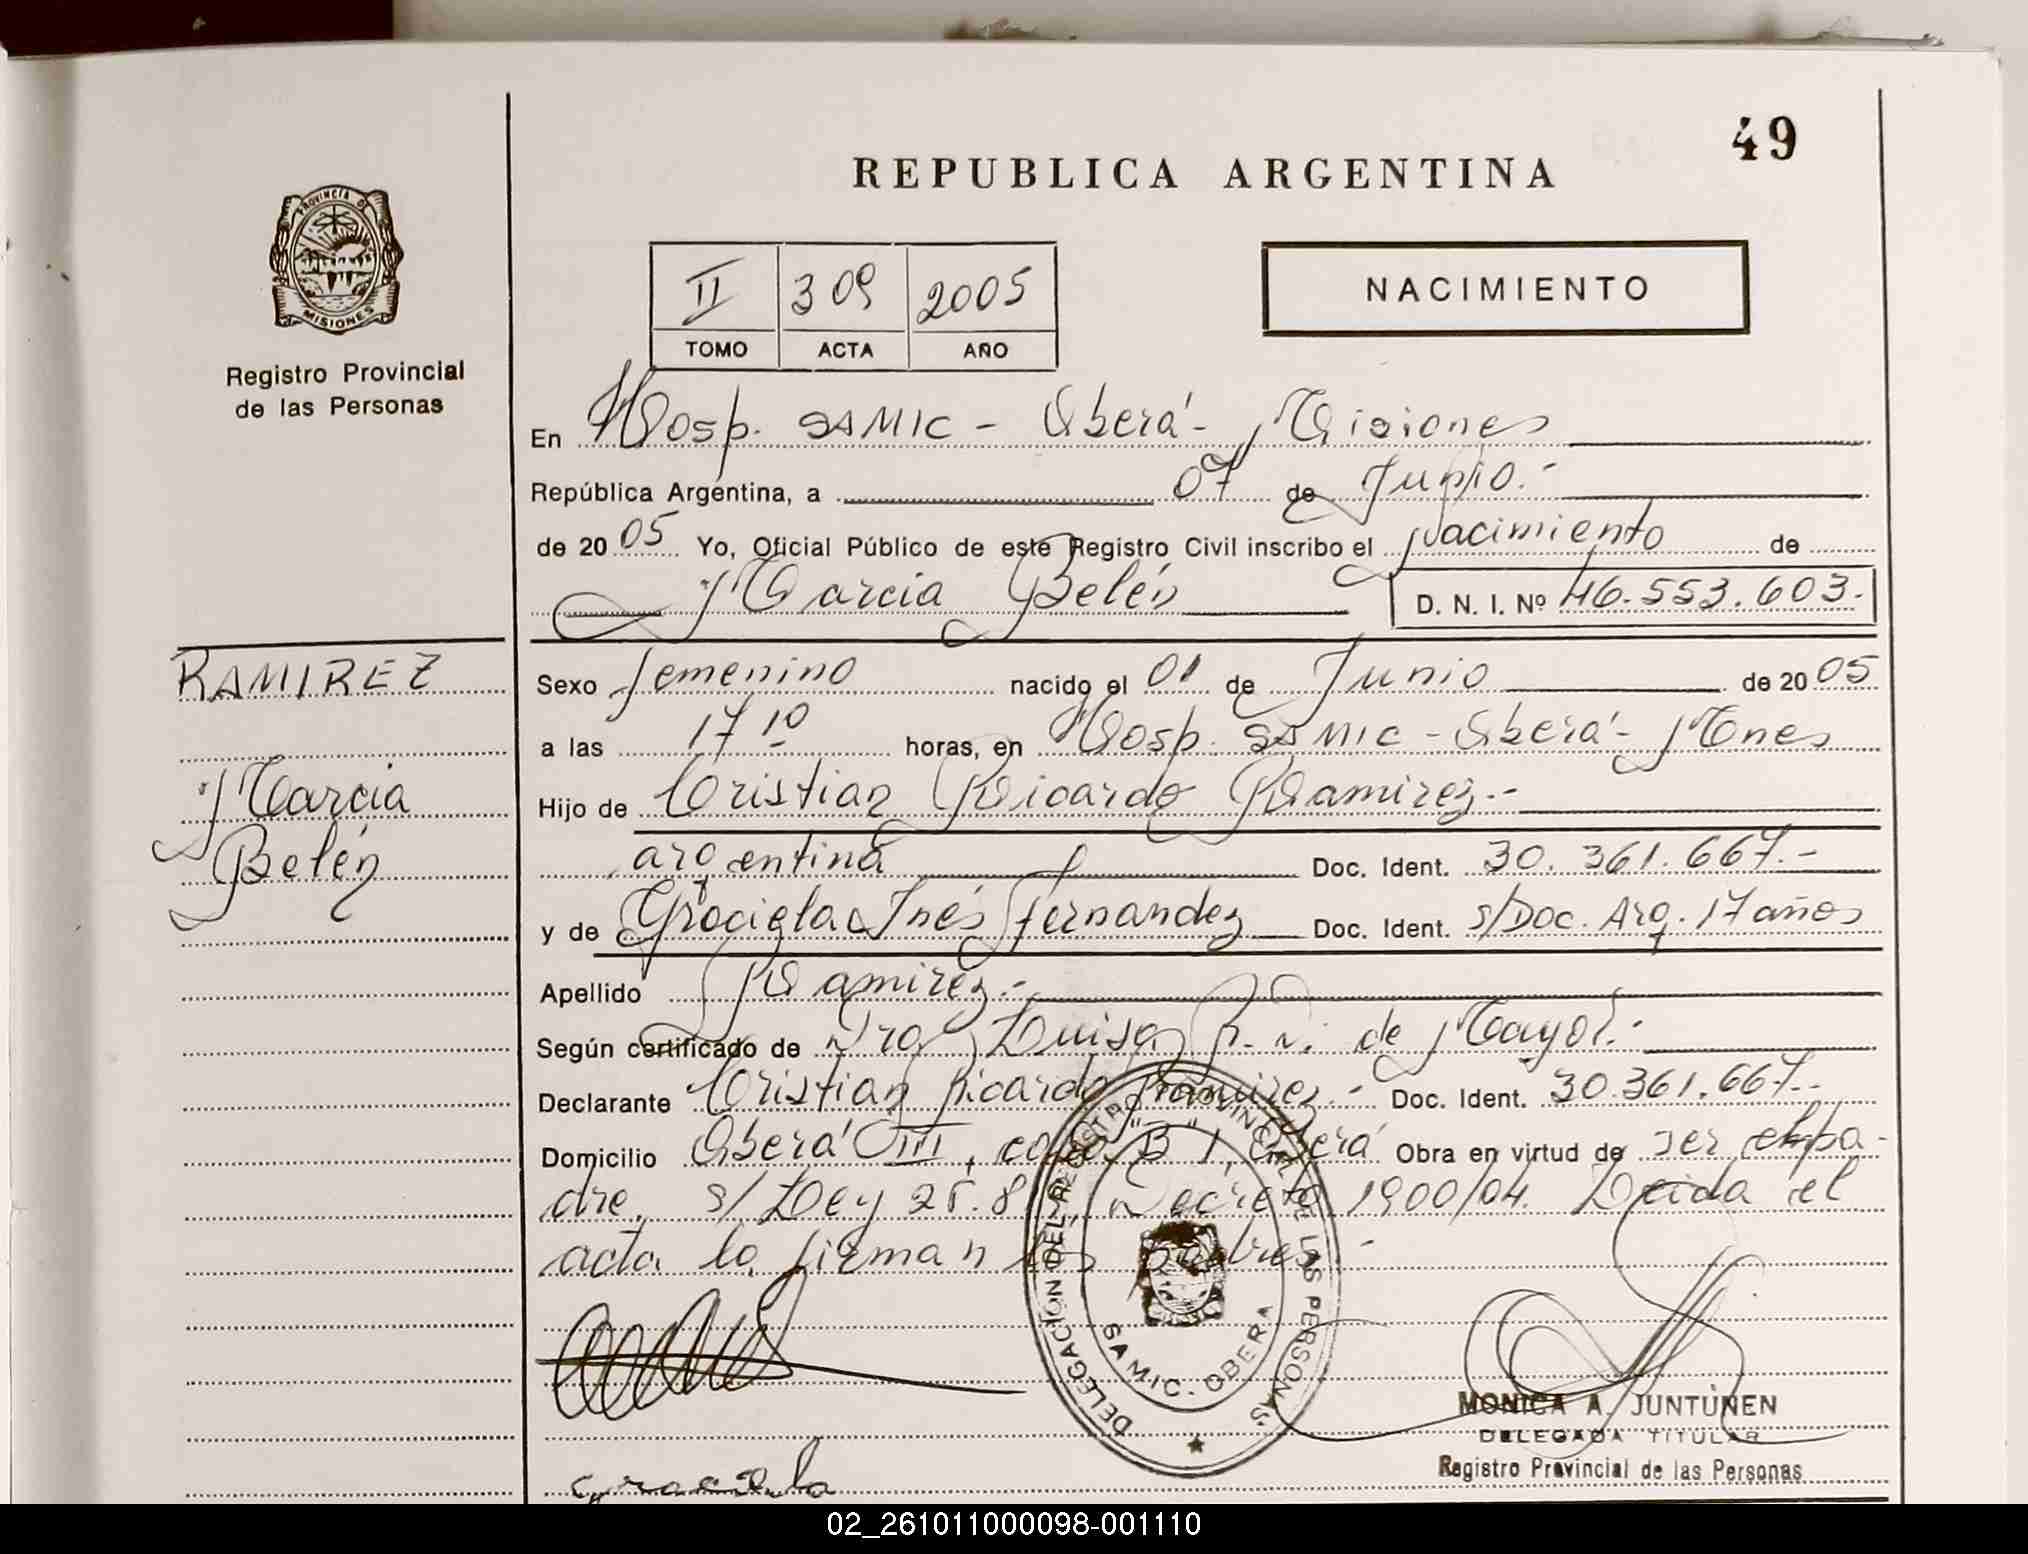 49
REPUBLICA ARGENTINA
PROVINCIA DE
MISIONES
Registro Provincial
de las Personas
II 309 2005
TOMO ACTA AÑO
NACIMIENTO
En Hosp. SAMIC - Oberá - Misiones
República Argentina, a 07 de Junio.-
de 2005 Yo, Oficial Público de este Registro Civil inscribo el Nacimiento de
Marcia Belén D. N. I. Nº 46.553.603.-
RAMIREZ
Marcia
Belén
Sexo femenino nacido el 01 de Junio de 2005
a las 17 10 horas, en Hosp. SAMIC - Oberá - Mnes
Hijo de Cristian Ricardo Ramirez.-
argentina Doc. Ident. 30.361.667.-
y de Graciela Inés Fernandez Doc. Ident. s/Doc. Arg. 17 años
Apellido Ramirez.-
Según certificado de Dra Luisa R. V. de Mayol.-
Declarante Cristian Ricardo Ramirez.- Doc. Ident. 30.361.667.-
Domicilio Oberá III, "B" 1, Oberá Obra en virtud de ser el pa-
dre, s/ Ley 25.8 , Decreto 1900/04. Leida el
acta la firman los padres.-
DELEGACION DEL REGISTRO PROVINCIAL DE LAS PERSONAS
SAMIC. OBERA
Graciela
MONICA A. JUNTUNEN
DELEGADA TITULAR
Registro Provincial de las Personas
02_261011000098-001110